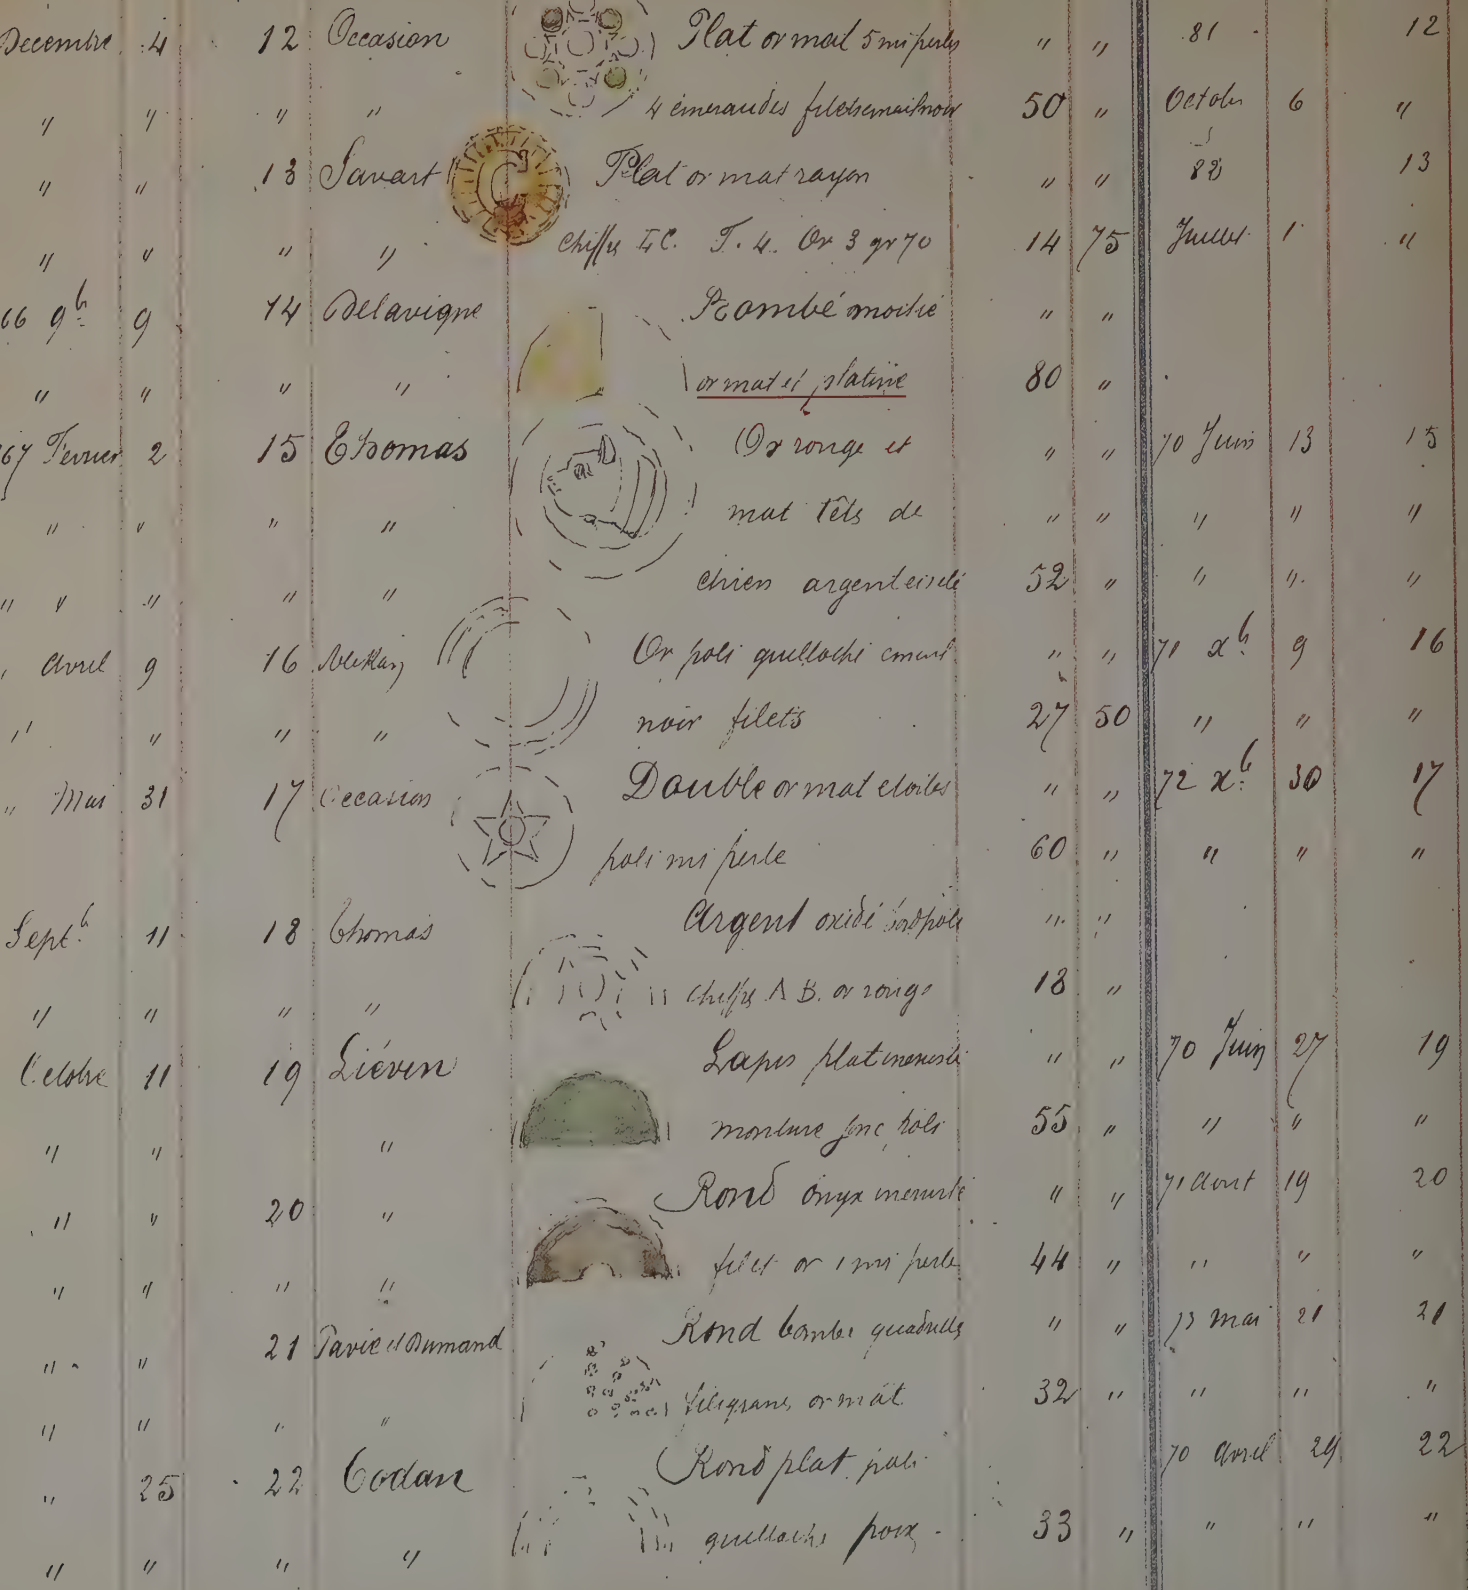 Decembre 4 12 Occasion Plat or mat 5 mi perles " " 81 12
" " " " 4 émeraudes filets email noir 50 " Octobr 6 "
" " 13 Savart Plat or mat rayon " " 82 13
" " " " Chiffre T. 4. Or 3 gr 70 14 75 Juillet 1 "
66 9b 9 14 Delavigne Bombé moitié " "
" " " " or mat et platine 80 "
67 Fevrier 2 15 Thomas Or rouge et " " 70 Juin 13 15
" " " " mat tête de " " " " "
" " " " " chien argent ciselé 52 " " " "
" Avril 9 16 Or poli guilloché email " " 71 xb 9 16
" " " " noir filets 27 50 " " "
" Mai 31 17 Occasion Double or mat etoiles " " 72 xb 30 17
poli mi perle 60 " " " "
Septb 11 18 Thomas Argent oxidé poli " "
" " " " chiffre A B. or rouge 18 "
Octobre 11 19 Liévin Lapis plat incrusté " " 70 Juin 27 19
" " " monture poli 55 " " " "
" " 20 " Rond onyx incrusté " " 71 Aout 19 20
" " " " filet or 1 mi perle 44 " " " "
" " 21 Pavie et Dumand Rond bombé quadrillé " " 73 mai 21 21
" " " " filigrane or mat 32 " " " "
" 25 22 Codan Rond plat poli 70 Avril 29 22
" " " " guilloché 33 " " " "